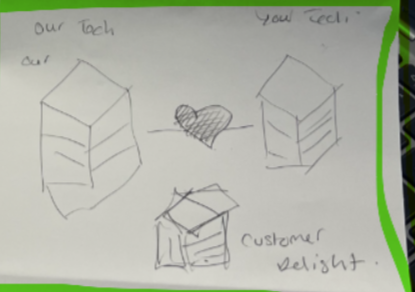 our Tech
your Tech.
our
Customer
Delight.